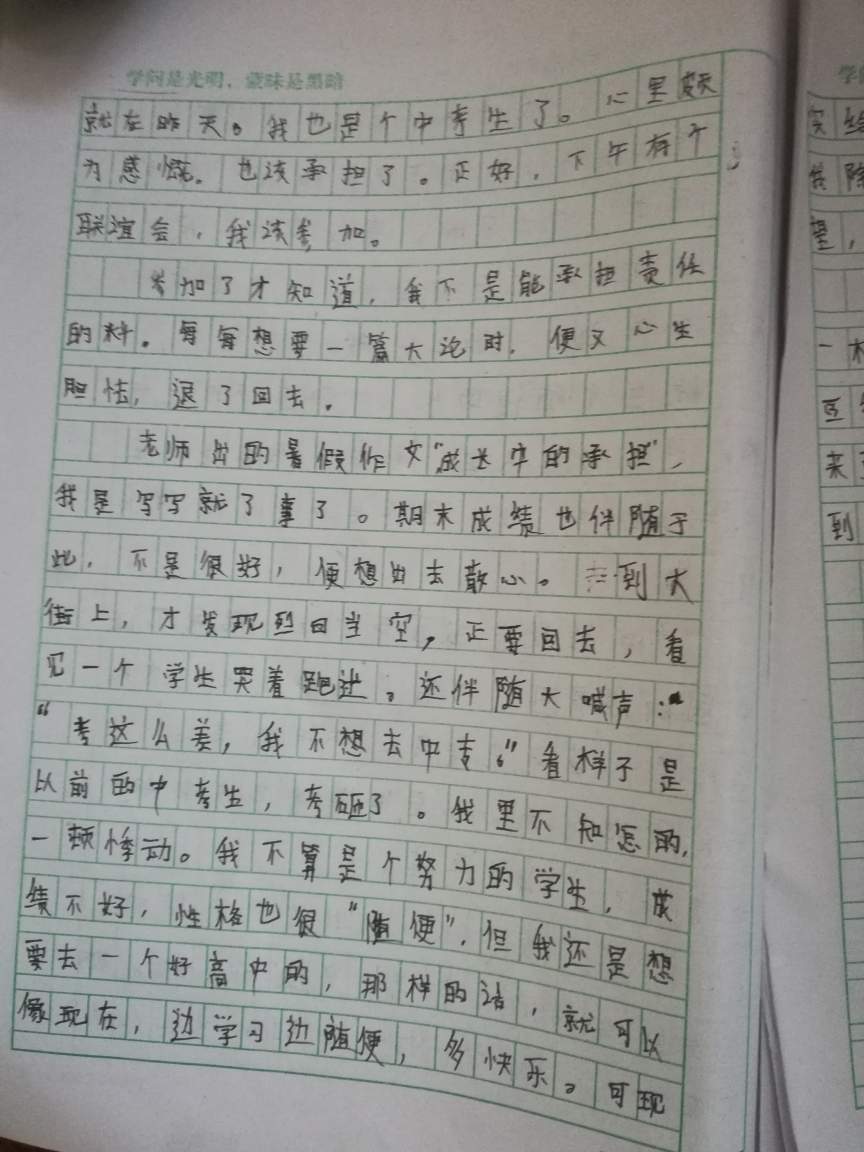 学问是光明，蒙昧是黑暗
就在昨天。我也是个中考生了。心里颇
为感慨。也该承担了。正好，下午有个
联谊会，我该参加。
参加了才知道，我不是能承担责任
的料。每每想要一篇大论时，便又心生
胆怯，退了回去。
老师出的暑假作文"成长中的承担"，
我是写写就了事了。期末成绩也伴随于
此，不是很好，便想出去散心。到大
街上，才发现烈日当空，正要回去，看
见一个学生哭着跑过。还伴随大喊声：
"考这么差，我不想去中专。"看样子是
以前的中考生，考砸了。我里不知怎的，
一颗悸动。我不算是个努力的学生，成
绩不好，性格也很"随便"，但我还是想
要去一个好高中的，那样的话，就可以
像现在，边学习边随便，多快乐。可现
学
实
望，
一
到